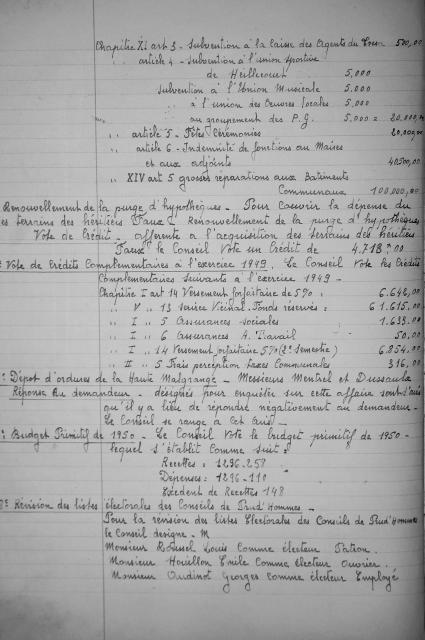 Chapitre XI art 3 - Subvention à la Caisse des Agents du Trésor 500,00
" article 4 - Subvention à l'union Sportive
de Heillecourt 5.000
Subvention à l'Union Musicale 5.000
" à l'union des Oeuvres locales 5.000
au groupement des P.G. 5.000 = 20.000,00
" article 5 - Fêtes Cérémonies 20.000,00
" article 6 - Indemnité de fonctions au Maires
et aux adjoints 40.500,00
" XIV art 5 grosses réparations aux Batiments
Communaux 100.000,00
Renouvellement de la purge d'hypothèques - Pour Couvrir la dépense du
des terrains des héritiers Faux - Renouvellement de la purge d'hypothèques
Vote de Crédit - afférente à l'acquisition des terrains des héritiers
Faux le Conseil Vote un Crédit de 4.718,00
Vote de Crédits Complémentaires à l'exercice 1949. Le Conseil Vote les Crédits
Complémentaires suivants à l'exercice 1949 -
Chapitre I art 14 Versement forfaitaire de 5% : 6.642,00
" V " 13 Service Vicinal - Fonds réservés : 61.615,00
" I " 5 Assurances sociales 1.633,00
" I " 6 Assurances A. Travail 50,00
" I " 14 Versement forfaitaire 5% (2e Semestre) 6.854,00
" II " 5 Frais perception taxes Communales 316,00
Dépot d'ordures de la Haute Malgrange - Messieurs Mentrel et
Réponse au demandeur - désignés pour enquêter sur cette affaire sont d'avis
qu'il y a lieu de répondre négativement au demandeur -
Le Conseil se range à cet avis -
Budget Primitif de 1950 - Le Conseil Vote le budget primitif de 1950 -
lequel s'établit comme suit :
Recettes : 1296.258
Dépenses : 1296-110
Excédent de Recettes 148
8° Révision des listes électorales des Conseils de Prud'Hommes -
Pour la révision des listes Electorales des Conseils de Prud'Hommes
le Conseil designe - M
Monsieur Roussel Louis Comme électeur Patron.
Monsieur Houillon Emile Comme électeur Ouvrier.
Monsieur Oudinot Georges Comme électeur Employé